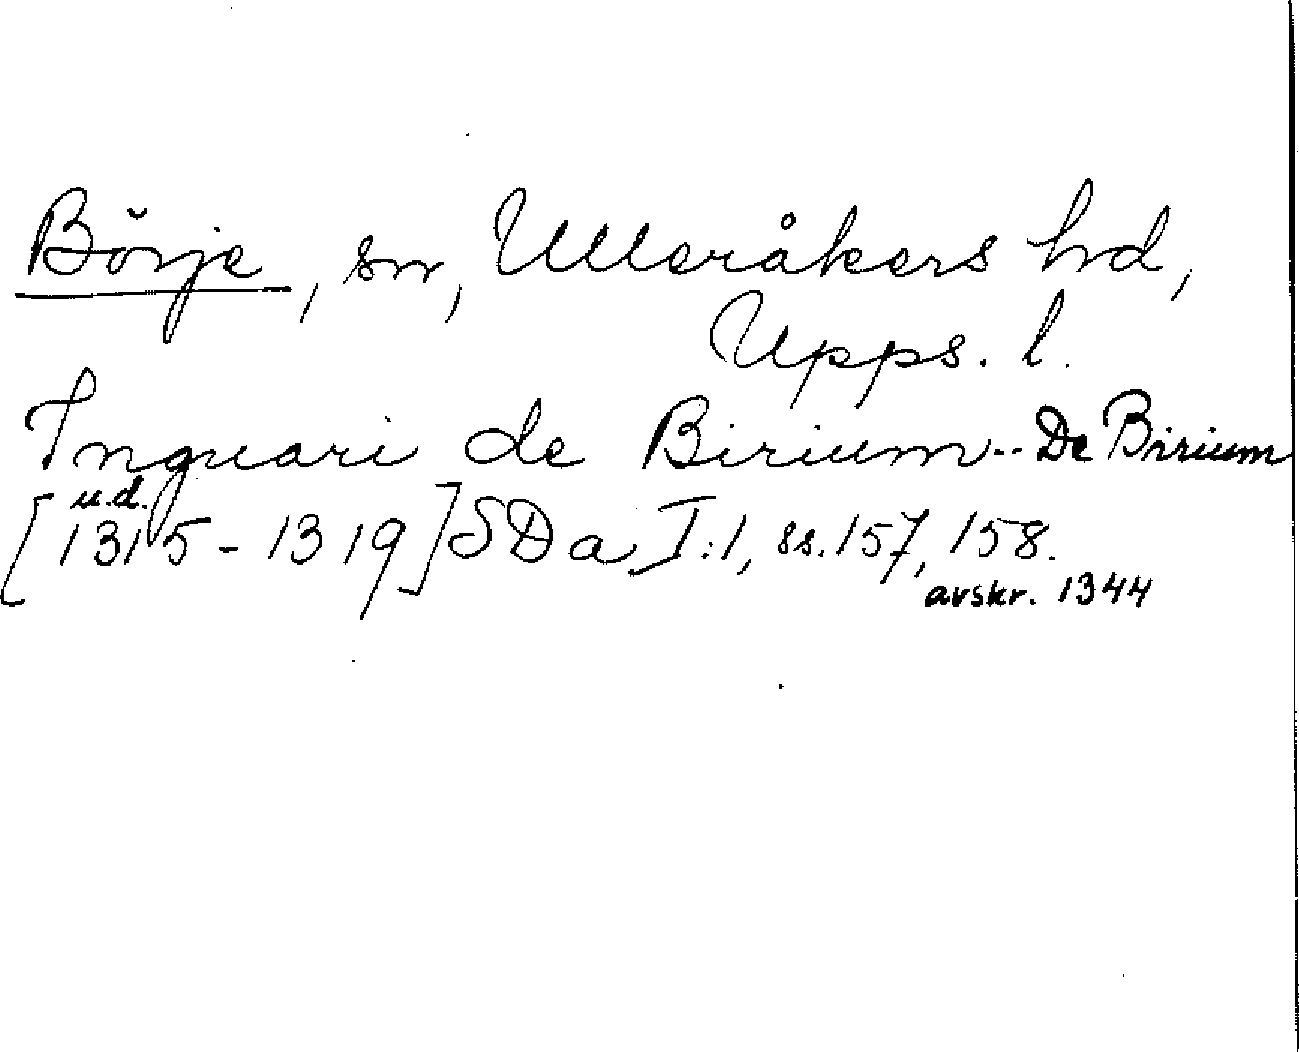 Börje, sn, Ulleråkers hd,
Upps. l.
Inguari de Birium.. De Birium
u.d.
[1315-1319] SDa I:1, ss. 157, 158.
avskr. 1344